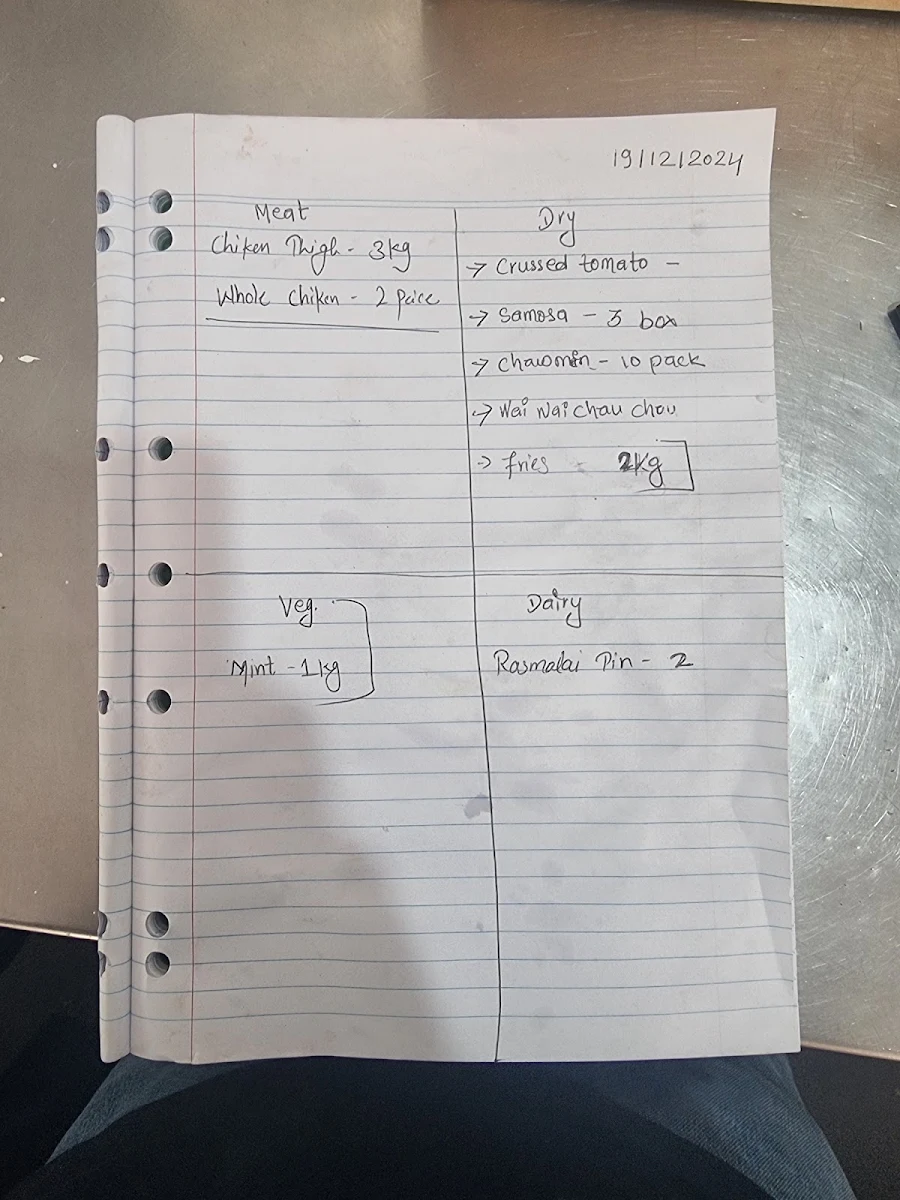 19/12/2024
Meat
Chiken Thigh - 3kg
Whole Chiken - 2 peice
Dry
→ Crussed tomato -
→ Samosa - 3 box
→ Chaomin - 10 pack
→ Wai Wai chau chou
→ fries - 2kg
Veg.
Mint - 1 kg
Dairy
Rasmalai Pin - 2